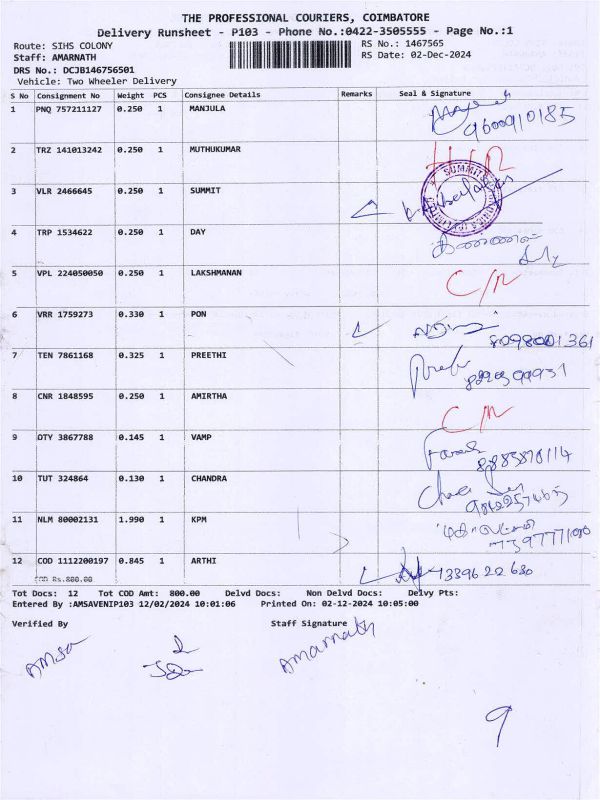 THE PROFESSIONAL COURIERS, COIMBATORE
Delivery Runsheet - P103 - Phone No.:0422-3505555 - Page No.:1
Route: SIHS COLONY RS No.: 1467565
Staff: AMARNATH RS Date: 02-Dec-2024
DRS No.: DCJB146756501
Vehicle: Two Wheeler Delivery
S No Consignment No Weight PCS Consignee Details Remarks Seal & Signature
1 PNQ 757211127 0.250 1 MANJULA
9600910185
2 TRZ 141013242 0.250 1 MUTHUKUMAR
3 VLR 2466645 0.250 1 SUMMIT
SUMMIT
4 TRP 1534622 0.250 1 DAY
5 VPL 224050050 0.250 1 LAKSHMANAN C/R
6 VRR 1759273 0.330 1 PON
7 TEN 7861168 0.325 1 PREETHI
8 CNR 1848595 0.250 1 AMIRTHA C/R
9 OTY 3867788 0.145 1 VAMP
10 TUT 324864 0.130 1 CHANDRA
11 NLM 80002131 1.990 1 KPM
12 COD 1112200197 0.845 1 ARTHI
COD Rs.800.00
Tot Docs: 12 Tot COD Amt: 800.00 Delvd Docs: Non Delvd Docs: Delvy Pts:
Entered By :AMSAVENIP103 12/02/2024 10:01:06 Printed On: 02-12-2024 10:05:00
Verified By Staff Signature
Amsa Amarnath
9